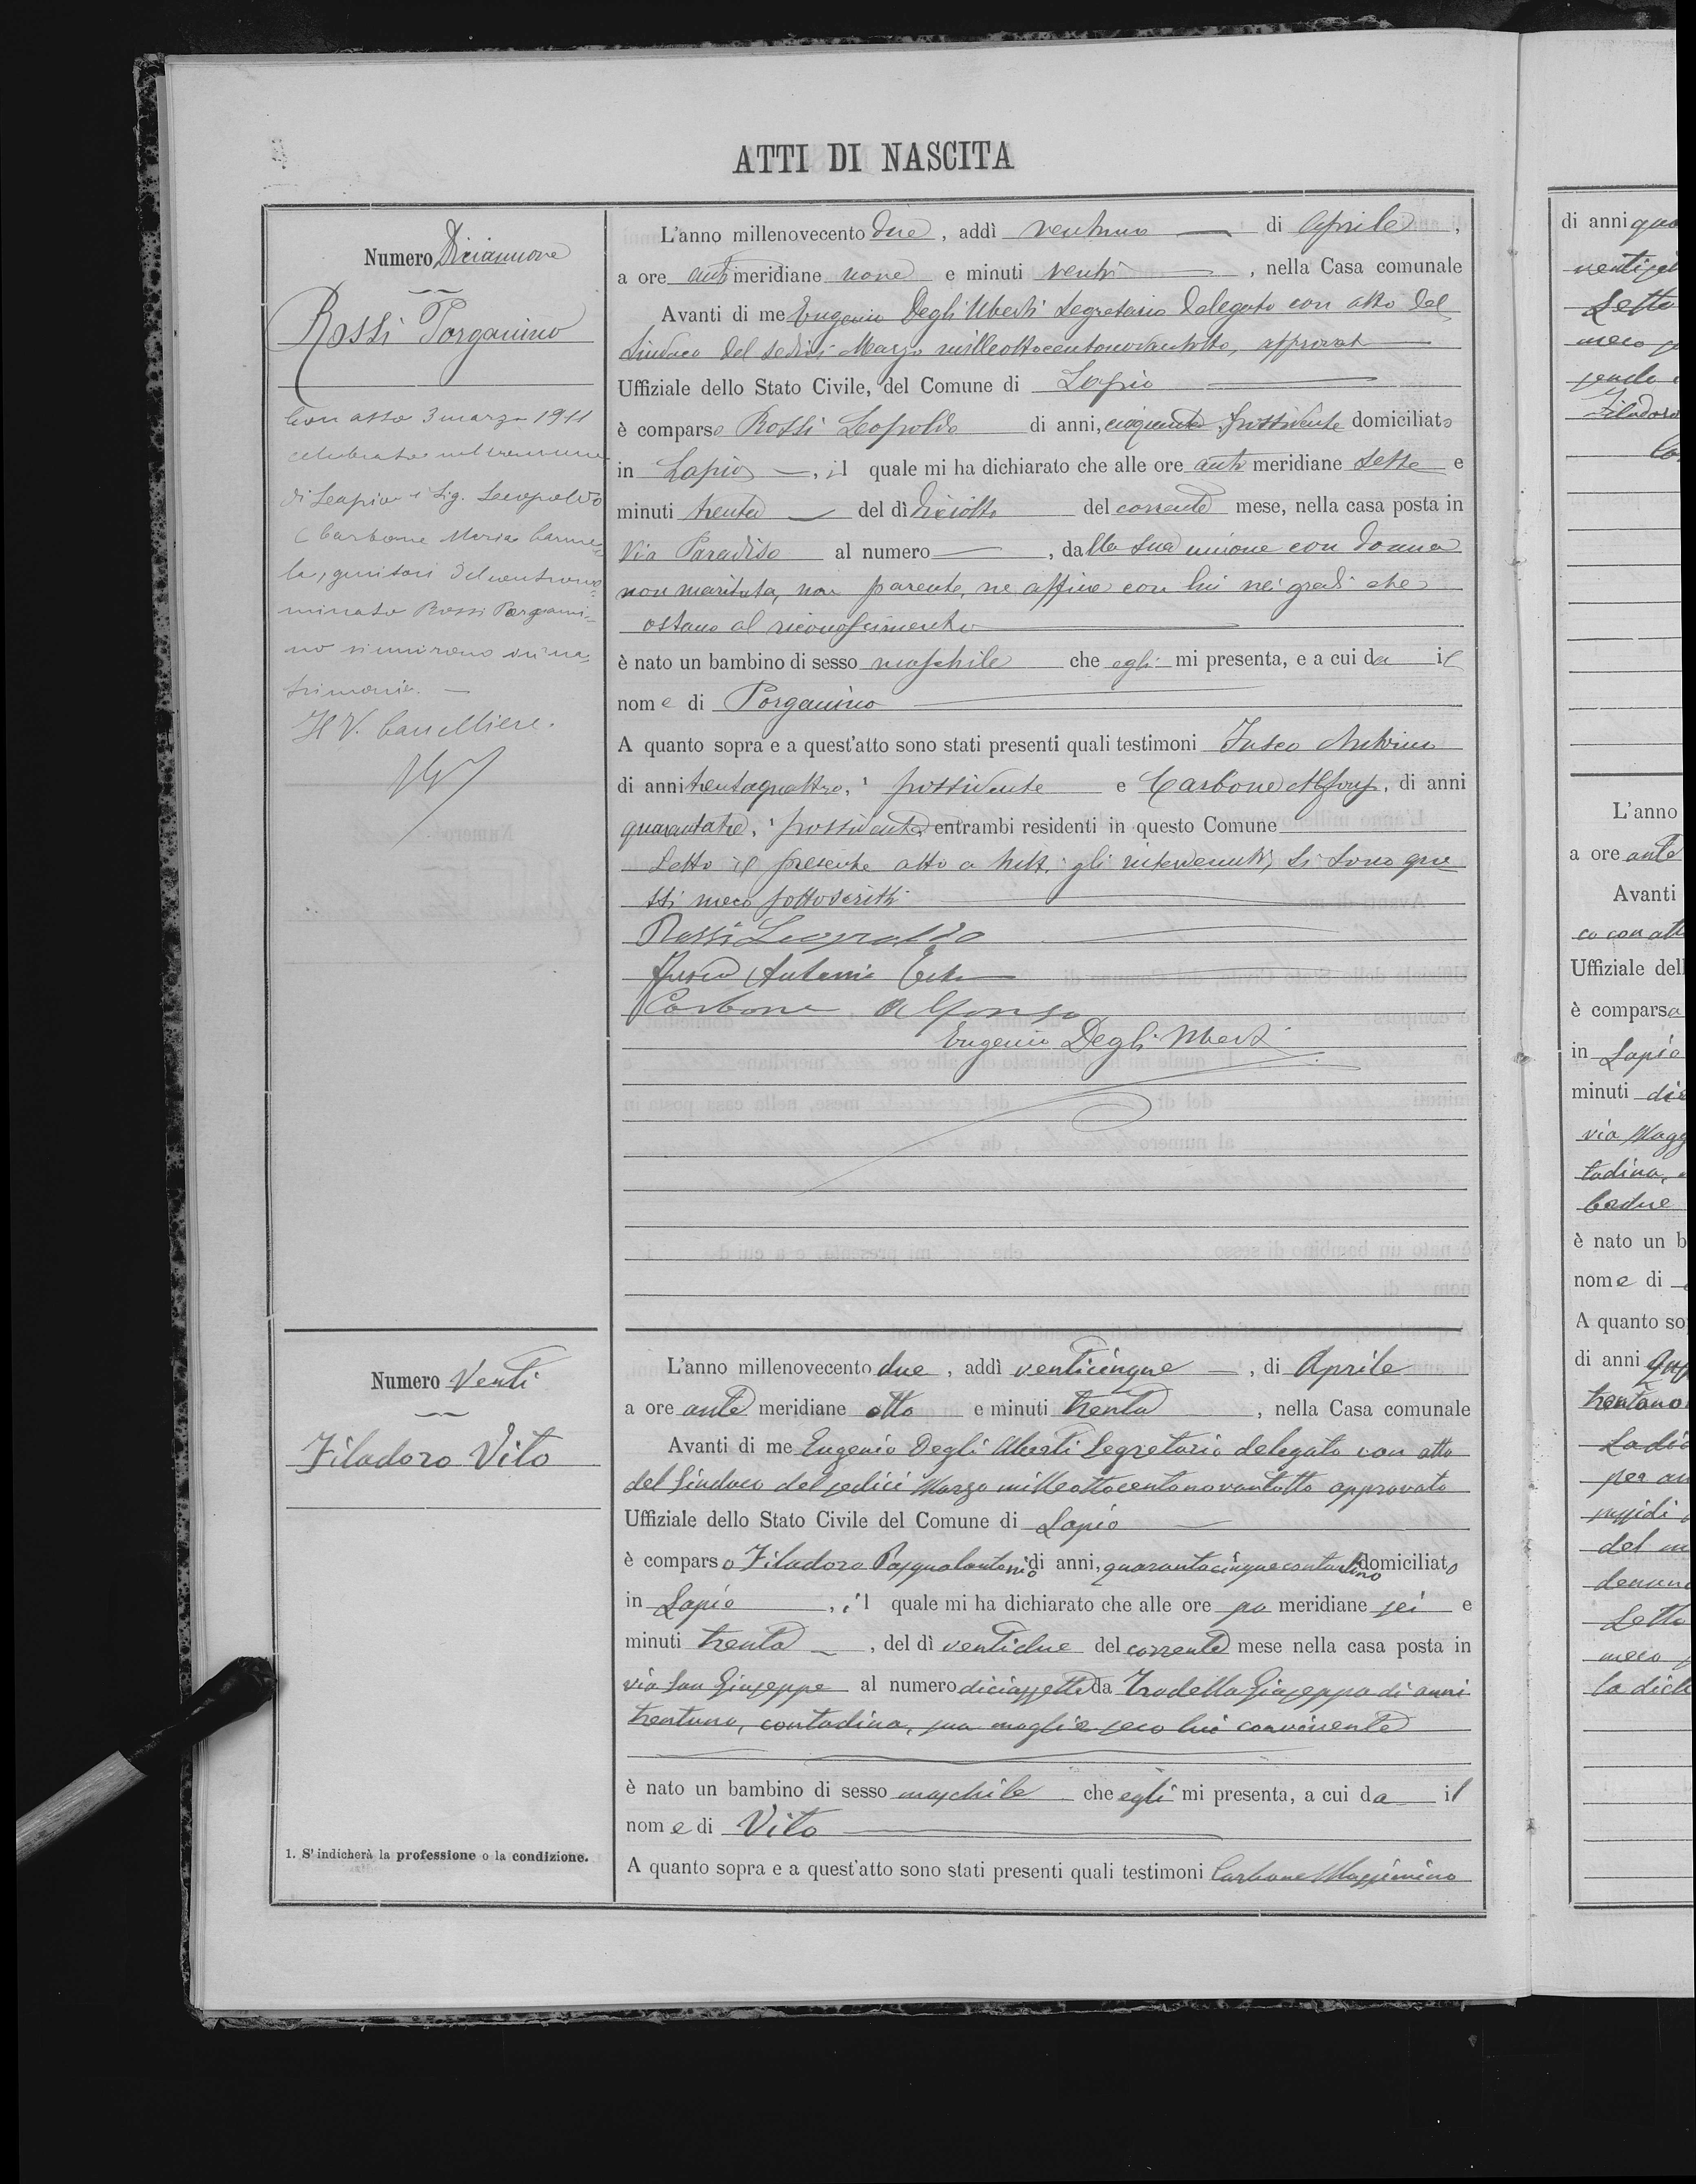 ATTI DI NASCITA
Numero Diciannove
Rossi Porganino
Con atto 3 marzo 1911
celebrato nel comune
di Lapio i Sig. Leopoldo
e Carbone Maria Carme=
la, genitori del controno=
minato Rossi Porgani=
no si unirono in ma=
trimonio. —
Il V. Cancelliere.
L'anno millenovecento due, addì ventuno — di Aprile,
a ore anti meridiane nove e minuti venti, nella Casa comunale
Avanti di me Eugenio Degli Uberti Segretario Delegato con atto del
Sindaco del sedici Marzo milleottocentonovantotto, approvat
Uffiziale dello Stato Civile, del Comune di Lapio
è comparso Rossi Leopoldo di anni, cinquanta, possidente domiciliato
in Lapio —, il quale mi ha dichiarato che alle ore anti meridiane sette e
minuti trenta — del dì diciotto del corrente mese, nella casa posta in
Via Paradiso al numero —, dalla sua unione con donna
non maritata, non parente, ne affine con lui nei gradi che
ostano al riconoscimento
è nato un bambino di sesso maschile che egli mi presenta, e a cui da il
nome di Porganino
A quanto sopra e a quest'atto sono stati presenti quali testimoni Fusco Antonino
di anni trentaquattro, possidente e Carbone Alfonso, di anni
quarantatre, possidente, entrambi residenti in questo Comune
Letto il presente atto a tutti gli intervenuti, si sono que
sti meco sottoscritti
Rossi Leopoldo
Fusco Antonino
Carbone Alfonso
Eugenio Degli Uberti
Numero Venti
Filadoro Vito
L'anno millenovecento due, addì venticinque —, di Aprile
a ore ante meridiane otto e minuti trenta, nella Casa comunale
Avanti di me Eugenio Degli Uberti Segretario delegato con atto
del Sindaco del sedici Marzo milleottocentonovantotto approvato
Uffiziale dello Stato Civile del Comune di Lapio
è comparso Filadoro Pasqualantonio di anni, quarantacinque contadino domiciliato
in Lapio, il quale mi ha dichiarato che alle ore po meridiane sei e
minuti trenta —, del dì ventidue del corrente mese nella casa posta in
via San Giuseppe al numero diciassette da Trodella Giuseppa di anni
trentuno, contadina, sua moglie seco lui convivente
è nato un bambino di sesso maschile che egli mi presenta, a cui da il
nome di Vito
A quanto sopra e a quest'atto sono stati presenti quali testimoni Carbone Massimino
1. S'indicherà la professione o la condizione.
di anni
Letto
meco
Filadoro
L'anno
a ore ante
Avanti
co con atto
Uffiziale dell
è comparsa
in Lapio
minuti
via Magg
tadina,
è nato un b
nome di
A quanto so
di anni
per
del
Letto
meco
la dich